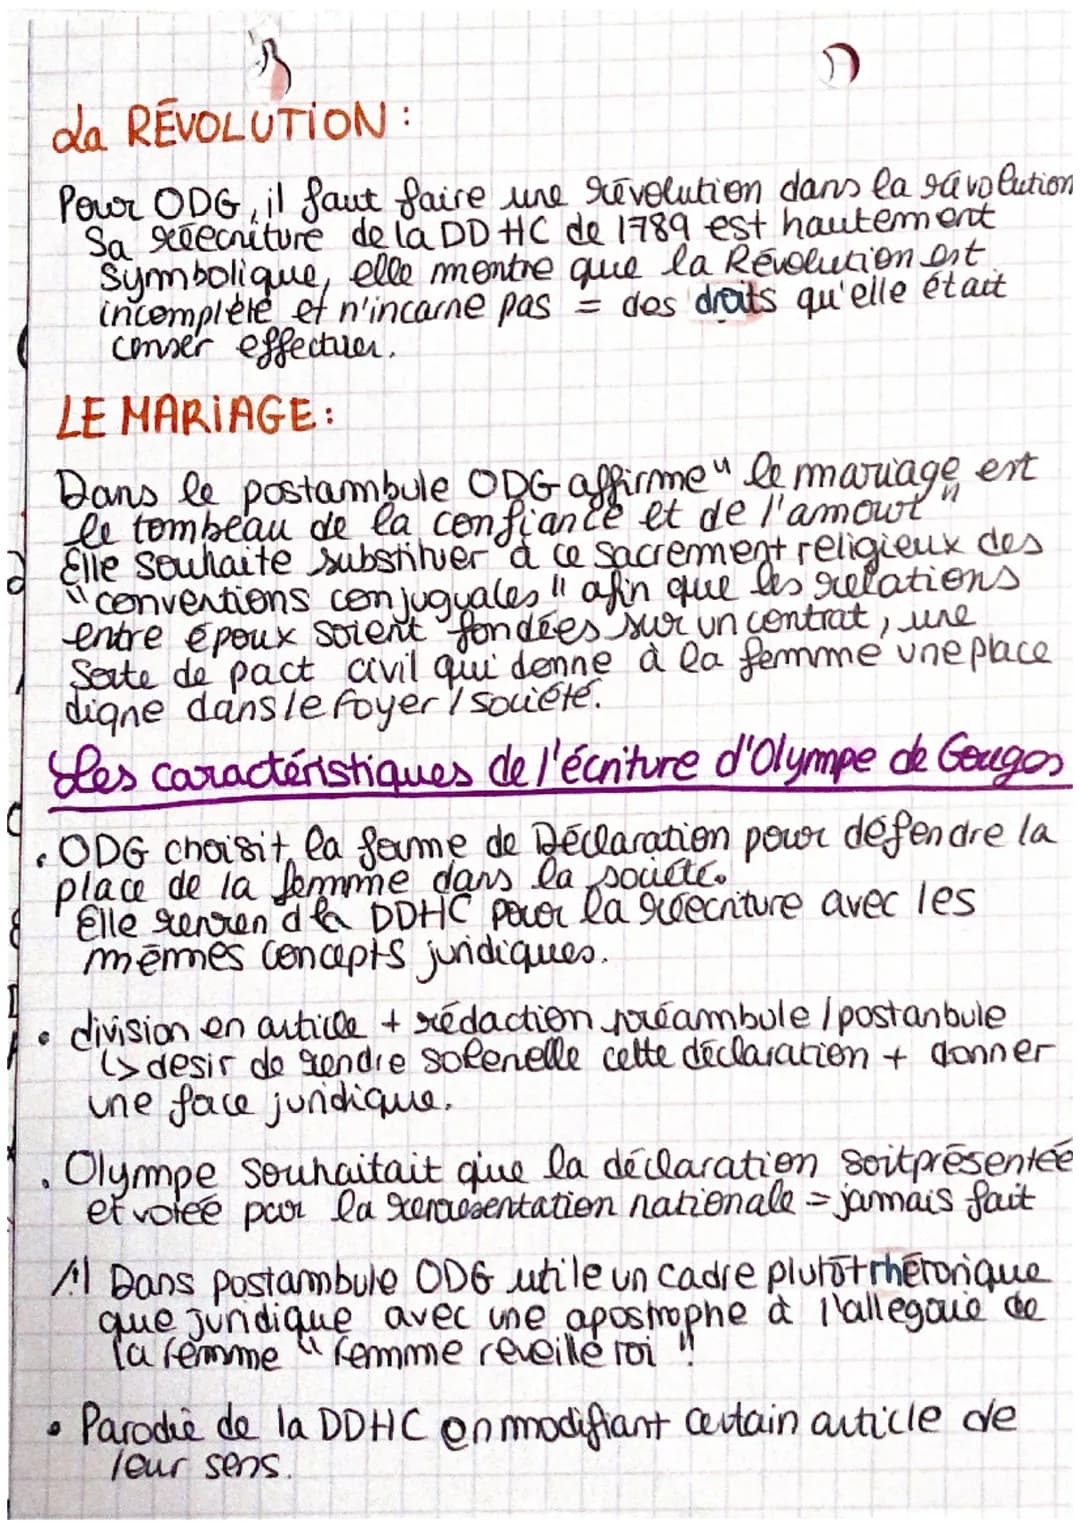 La RÉVOLUTION :
Pour ODG, il faut faire une révolution dans la révolution
Sa réécriture de la DDHC de 1789 est hautement
symbolique, elle montre que la Révolution est
incomplète et n'incarne pas = des droits qu'elle était
censer effectuer.
LE MARIAGE :
Dans le postambule ODG affirme " le mariage est
le tombeau de la confiance et de l'amour "
Elle souhaite substituer à ce sacrement religieux des
" conventions conjuguales " afin que les relations
entre époux soient fondées sur un contrat, une
sorte de pact civil qui donne à la femme une place
digne dans le foyer / société.
Les caractéristiques de l'écriture d'Olympe de Gouges
. ODG choisit la forme de Déclaration pour défendre la
place de la femme dans la société.
Elle reprend la DDHC pour la réecriture avec les
mêmes concepts juridiques.
• division en article + rédaction préambule / postanbule
↳ desir de rendre solenelle cette déclaration + donner
une face juridique.
. Olympe souhaitait que la déclaration soit présentée
et votée par la representation nationale = jamais fait
/!\ Dans postambule ODG utile un cadre plutôt rhétorique
que juridique avec une apostrophe à l'allegorie de
la femme " femme reveille toi "!
• Parodie de la DDHC en modifiant certain article de
leur sens.